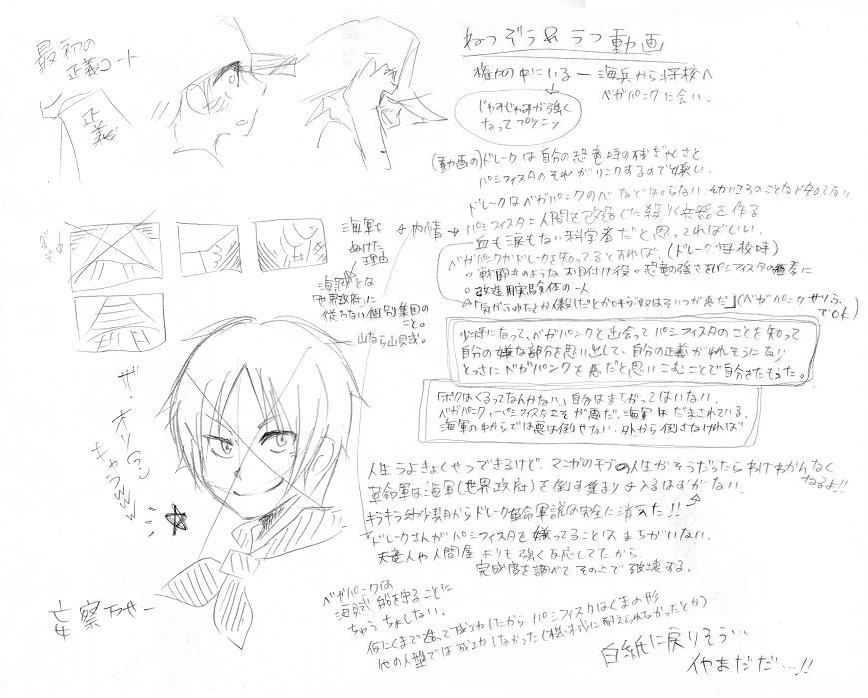 最初の
正義コート
正義
ねつぞう&ラフ動画
権力の中にいる ー 海兵から将校へ
ベガパンクに会い、
強く
なってプツン
(動画の)ドレークは自分の恐竜時の残ぎゃくさと
パシフィスタのそれがリンクするので嫌い。
ドレークはベガパンクの
など知らない 幼いころのことなど知らない
海軍を
ぬけた
理由
内情
パシフィスタ=人間を改造した殺りく兵器を作る
血も涙もない科学者だと思ってればいい。
ベガパンクがドレークを知ってるとすれば、(ドレーク将校時)
のようなお目付け役。恐竜の強さをパシフィスタの
に
改造用実験体の一人
(ベガパンク サリふ
でOK)
海賊とな
「世界政府」に
従らない個別集団の
こと。
山なら山賊。
少将になって、ベガパンクと出会ってパシフィスタのことを知って
自分の嫌な部分を思い出して、自分の正義がゆれそうになり
とっさにベガパンクを悪だと思いこむことで自分をたもった。
「ボクはくるってなんかない」自分はまちがってはいない。
ベガパンク、パシフィスタこそが悪だ。海軍はだまされている。
海軍の中からでは悪は倒せない。外から倒さなければ
ザ・オリジナル
キャラww
人生うよきょくせつできるけど、マンガのモブの人生がそうだったらわけわかんなく
なるよ!!
革命軍は海軍(世界政府)を倒す集まり 入るはずがない。
キラキラ幼少期からドレーク革命軍説は完全に消えた!!
ドレークさんがパシフィスタを嫌ってることはまちがいない。
天竜人や人間屋よりも強く反応してたから
完成度を調べてその上で破壊する。
ベガパンクは
海賊船を守ることに
ちゅうちょしない。
仮にくままで造って成功したからパシフィスタはくまの形
他の人型では成功しなかった(機械式に耐えられなかったとか)
妄察万せー
白紙に戻りそう…
いやまだだ…!!